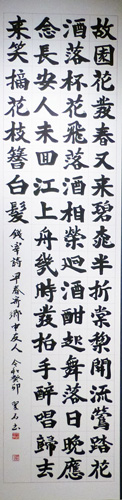 故園花發春又来碧桃半折棠梨開流鶯踏花
酒落杯花飛落酒相縈迴酒酣起舞落日晚應
念長安人未回江上舟幾時發拍手醉唱歸去
来笑插花枝簪白髮
錢宰詩 甲辰寄濟中友人 令和癸卯 書